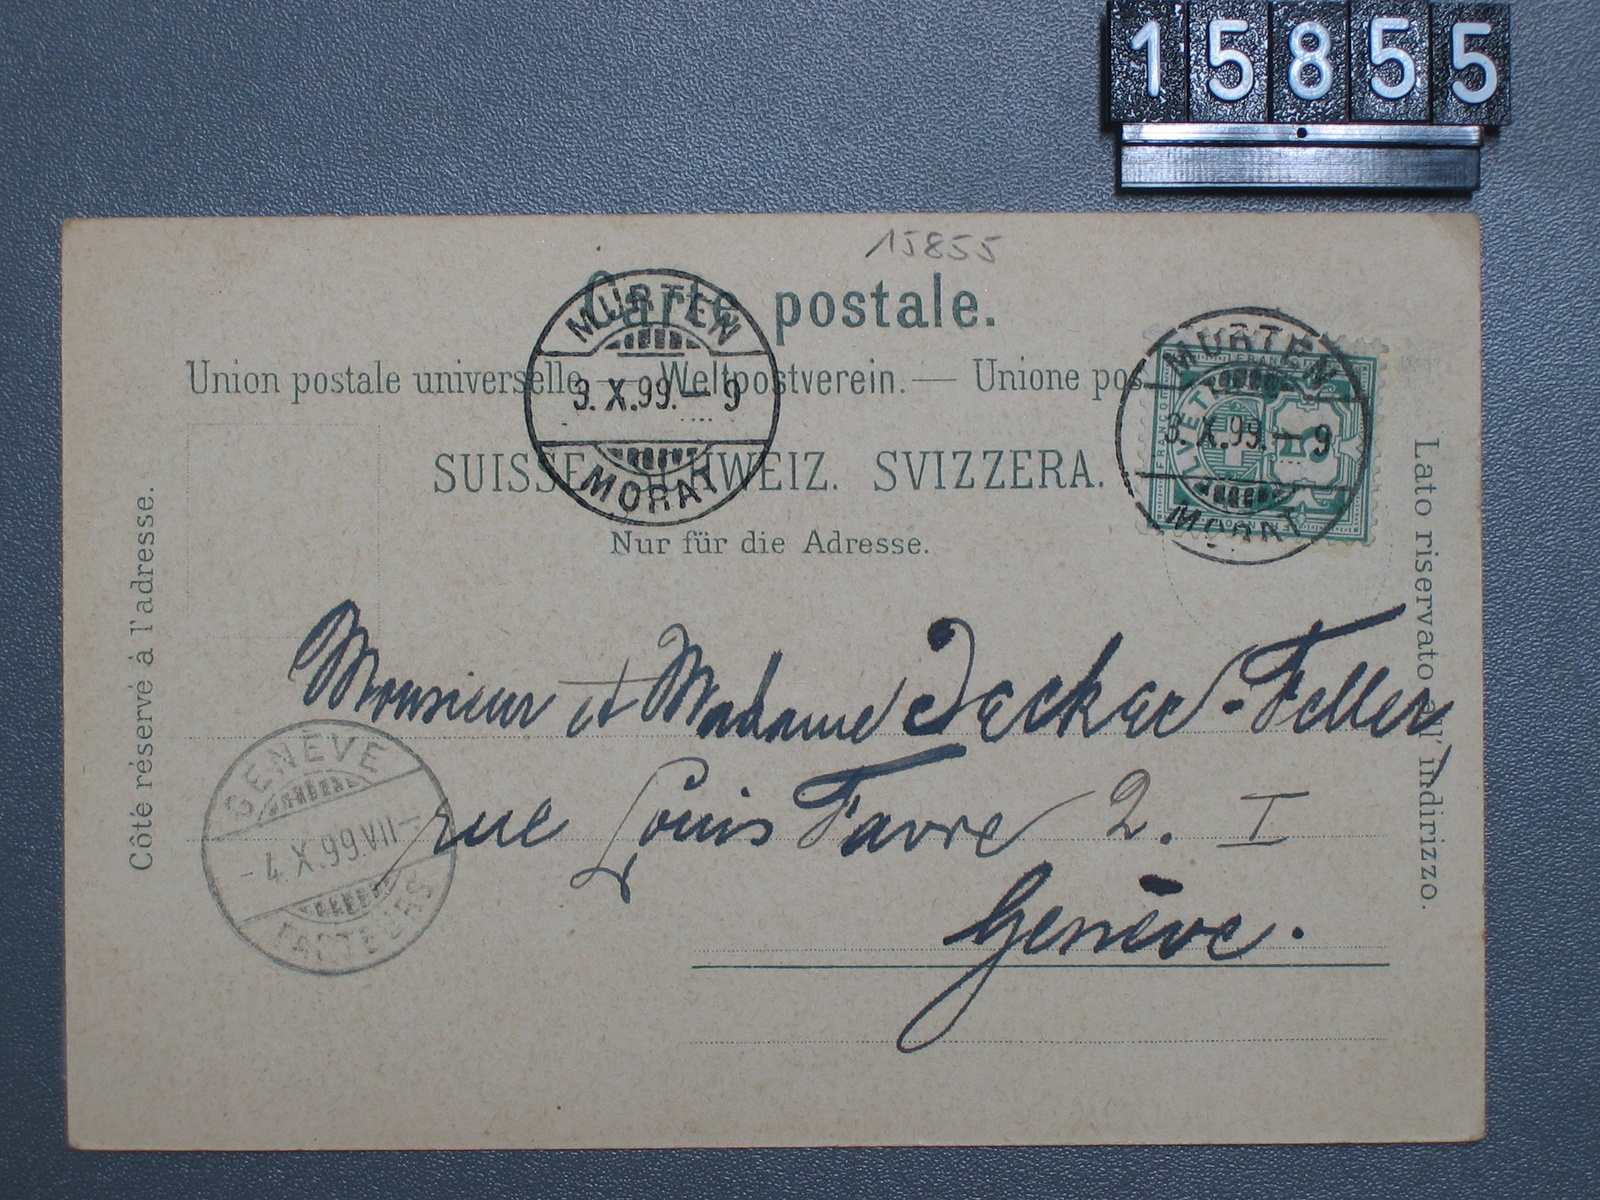 15855
15855
Carte postale.
Union postale universelle. — Weltpostverein. — Unione pos
SUISSE. SCHWEIZ. SVIZZERA.
Nur für die Adresse.
MURTEN
3.X.99.–9
MORAT
MURTEN
3.X.99.–9
MORAT
HELVETIA
FRANCO
Côté réservé à l'adresse.
Lato riservato all'indirizzo.
Monsieur et Madame Jecker-Feller,
rue Louis Favre 2. I
Genève.
GENÈVE
-4.X.99.VII-
FACTEURS